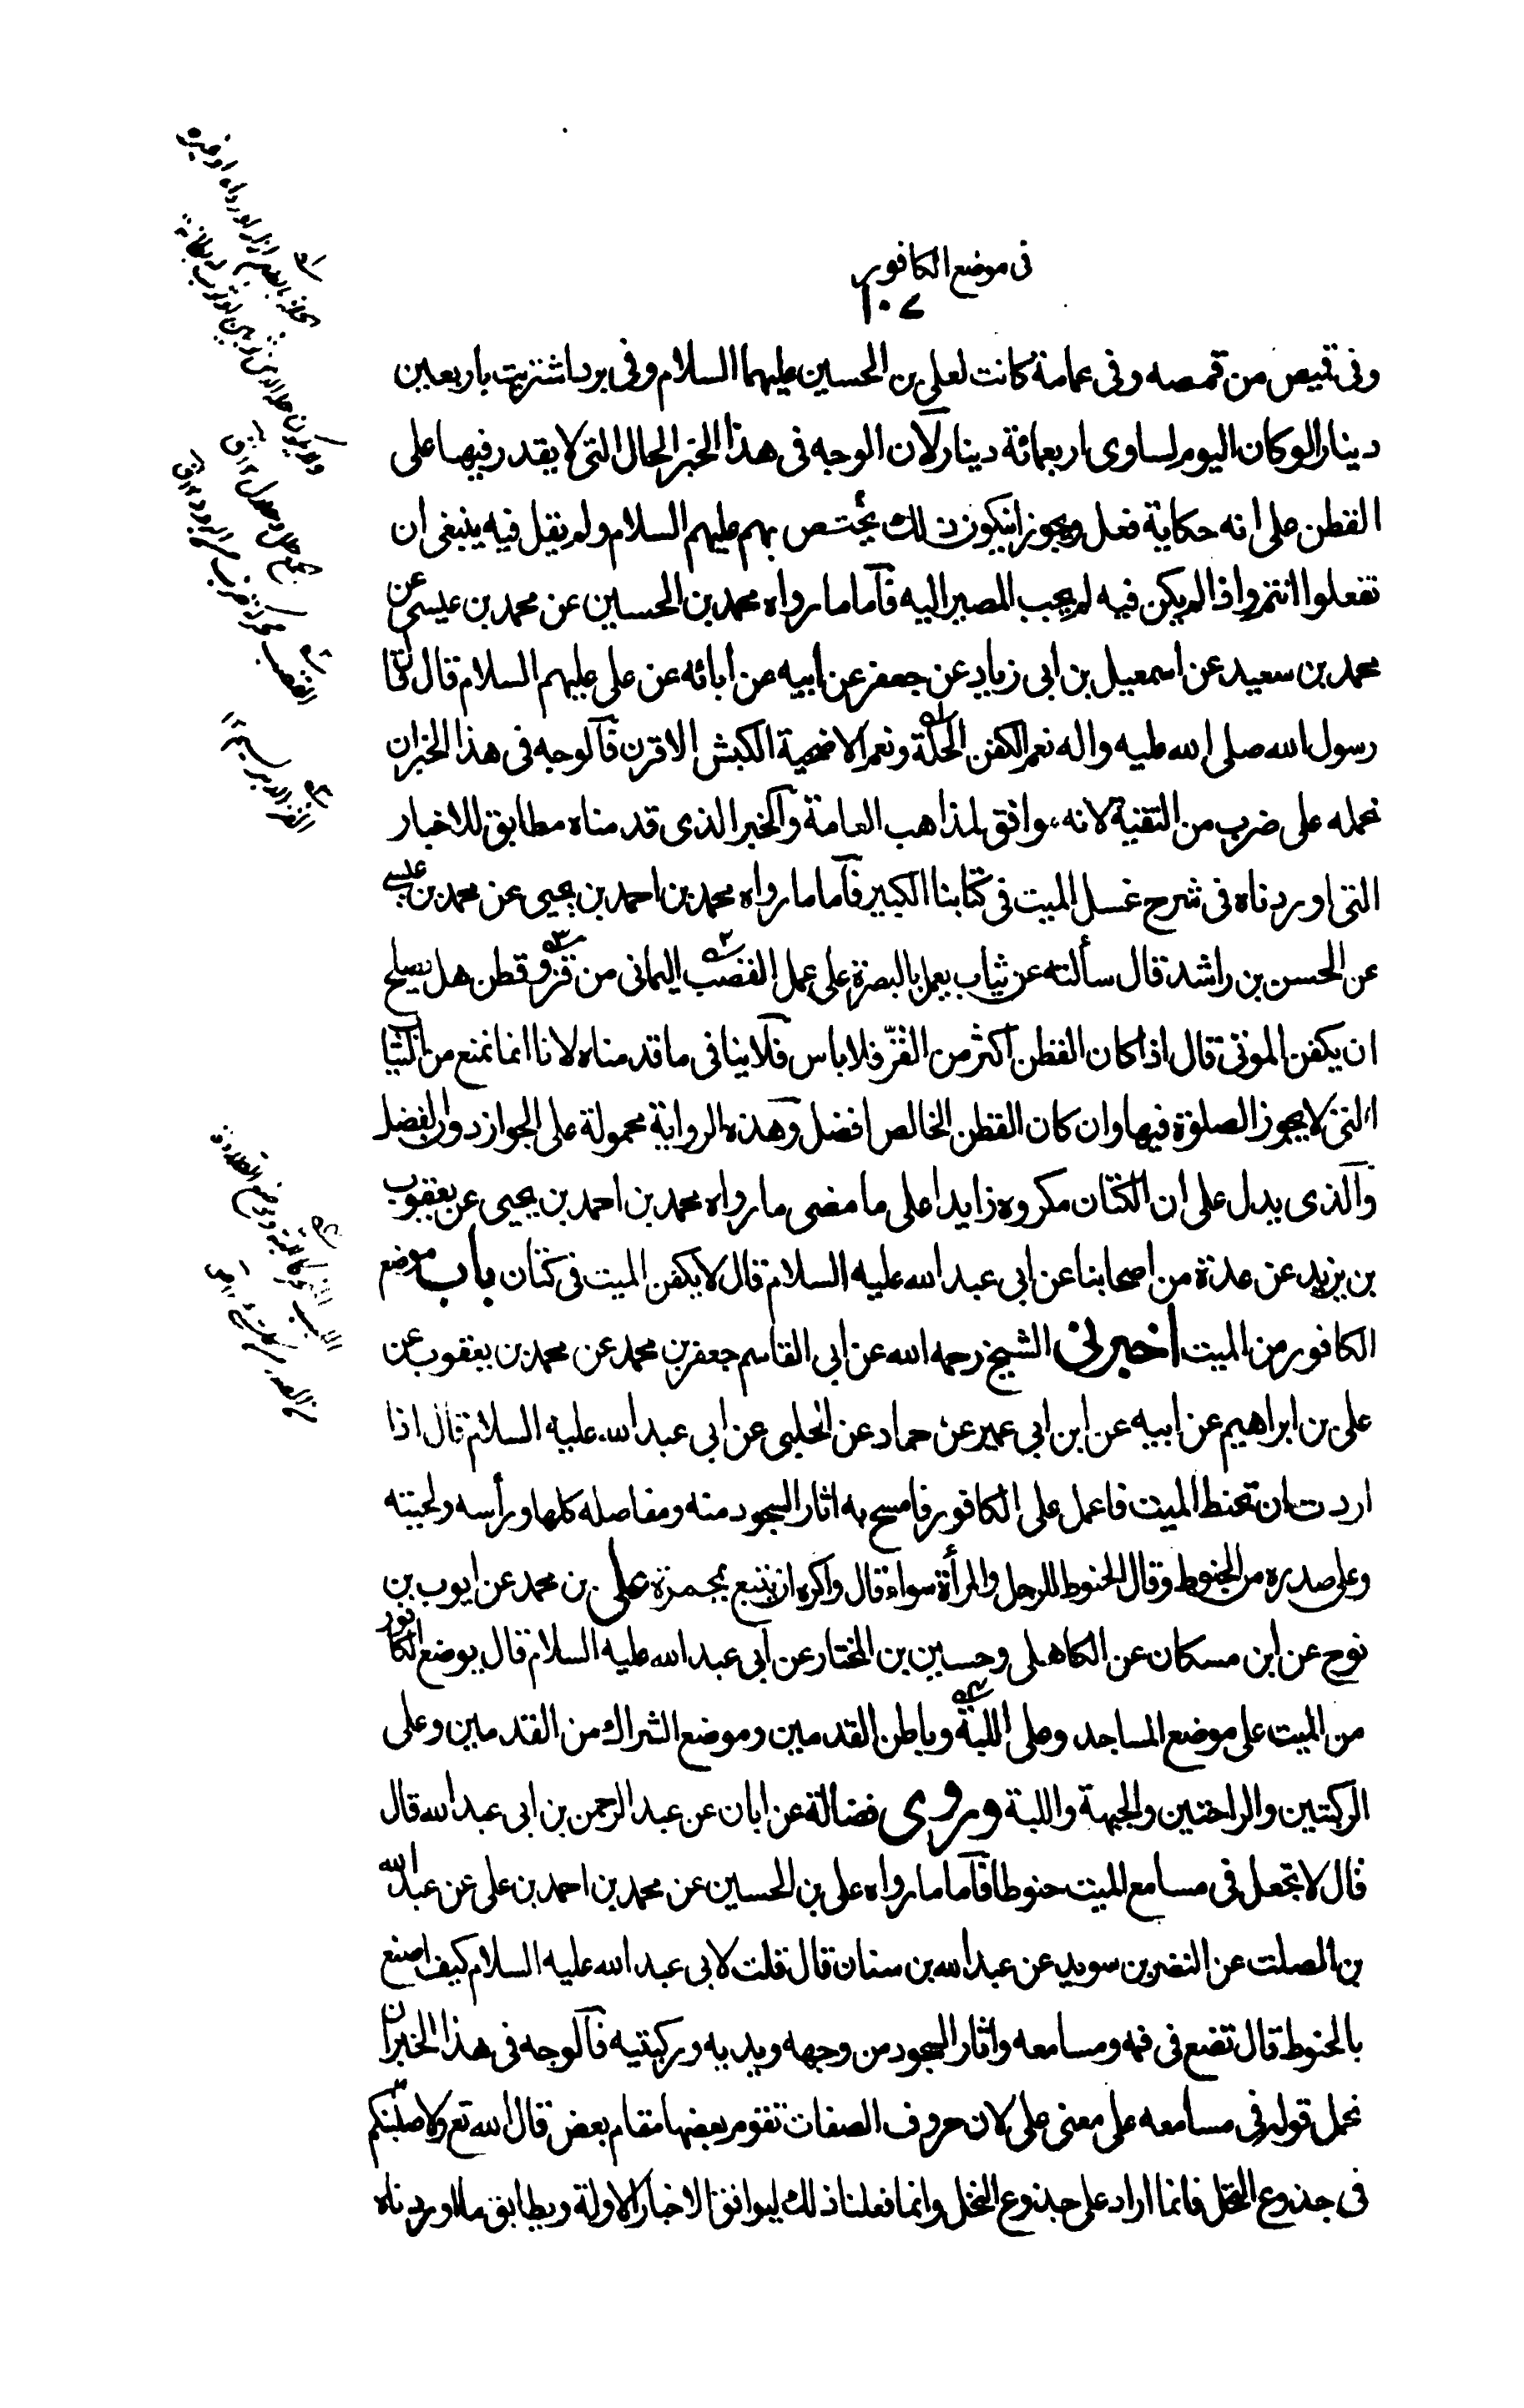 فى موضع الكافور
١٠٧
وفى قميص من قمصه وفى عمامة كانت لعلى بن الحسين عليهما السلام وفى برد اشتريت باربعين
دينارا لوكان اليوم لساوى اربعمائة دينار لان الوجه فى هذا الخبر الحال التى لا يقدر فيها على
القطن على انه حكاية فعل ويجوز ان يكون ذلك يختص بهم عليهم السلام ولم يقل فيه ينبغى ان
تفعلوا انتم واذا لم يكن فيه لم يجب المصير اليه فاما ما رواه محمد بن الحسين عن محمد بن عيسى عن
محمد بن سعيد عن اسمعيل بن ابى زياد عن جعفر عن ابيه عن ابائه عن على عليهم السلام قال قال
رسول الله صلى الله عليه واله نعم الكفن الحلة ونعم الاضحية الكبش الاقرن فالوجه فى هذا الخبر ان
نحمله على ضرب من التقية لانه موافق لمذاهب العامة والخبر الذى قدمناه مطابق للاخبار
التى اوردناه فى شرح غسل الميت فى كتابنا الكبير فاما ما رواه محمد بن احمد بن يحيى عن محمد بن عيسى
عن الحسن بن راشد قال سألته عن ثياب يعمل بالبصرة على عمل القصب اليمانى من قز وقطن هل يصلح
ان يكفن الموتى قال اذا كان القطن اكثر من القز فلا باس فلا ينافى ما قدمناه لانا انما نمنع من الثيا
التى لا يجوز الصلوة فيها وان كان القطن الخالص افضل وهذه الرواية محمولة على الجواز دون الفضل
والذى يدل على ان الكتان مكروه زايدا على ما مضى ما رواه محمد بن احمد بن يحيى عن يعقوب
بن يزيد عن عدة من اصحابنا عن ابى عبد الله عليه السلام قال لا يكفن الميت فى كتان باب موضع
الكافور من الميت اخبرنى الشيخ رحمه الله عن ابى القاسم جعفر بن محمد عن محمد بن يعقوب عن
على بن ابراهيم عن ابيه عن ابن ابى عمير عن حماد عن الحلبى عن ابى عبد الله عليه السلام قال اذا
اردت ان تحنط الميت فاعمل على الكافور فامسح به اثار السجود منه ومفاصله كلها ورأسه ولحيته
وعلى صدره من الحنوط وقال الحنوط للرجل والمرأة سواء قال واكره ان يتبع بمجمرة على بن محمد عن ايوب بن
نوح عن ابن مسكان عن الكاهلى وحسين بن المختار عن ابى عبد الله عليه السلام قال يوضع الكافور
من الميت على موضع المساجد وعلى اللبة وباطن القدمين وموضع الشراك من القدمين وعلى
الركبتين والراحتين والجبهة واللبة وروى فضالة عن ابان عن عبد الرحمن بن ابى عبد الله قال
قال لا تجعل فى مسامع الميت حنوطا فاما ما رواه على بن الحسين عن محمد بن احمد بن على عن عبد الله
بن الصلت عن النضر بن سويد عن عبد الله بن سنان قال قلت لابى عبد الله عليه السلام كيف اصنع
بالحنوط قال تضع فى فمه ومسامعه واثار السجود من وجهه ويديه وركبتيه فالوجه فى هذا الخبر ان
نحمل قوله فى مسامعه على معنى على لان حروف الصفات تقوم بعضها مقام بعض قال الله تع ولاصلبنكم
فى جذوع النخل فانما اراد على جذوع النخل وانما فعلنا ذلك ليوافق الاخبار الاولة ويطابق ما اوردناه